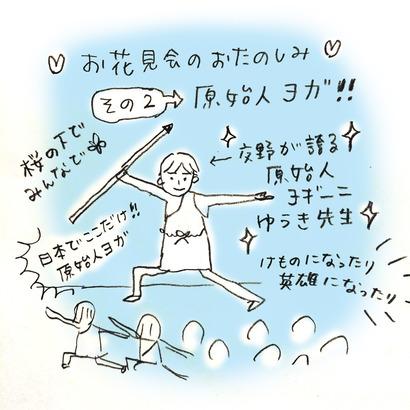 ♡ お花見会のおたのしみ ♡
その2 → 原始人ヨガ!!
桜の下で
みんなで
← 交野が誇る
原始人
ヨギーニ
ゆうき先生
日本でここだけ!!
原始人ヨガ
けものになったり
英雄になったり